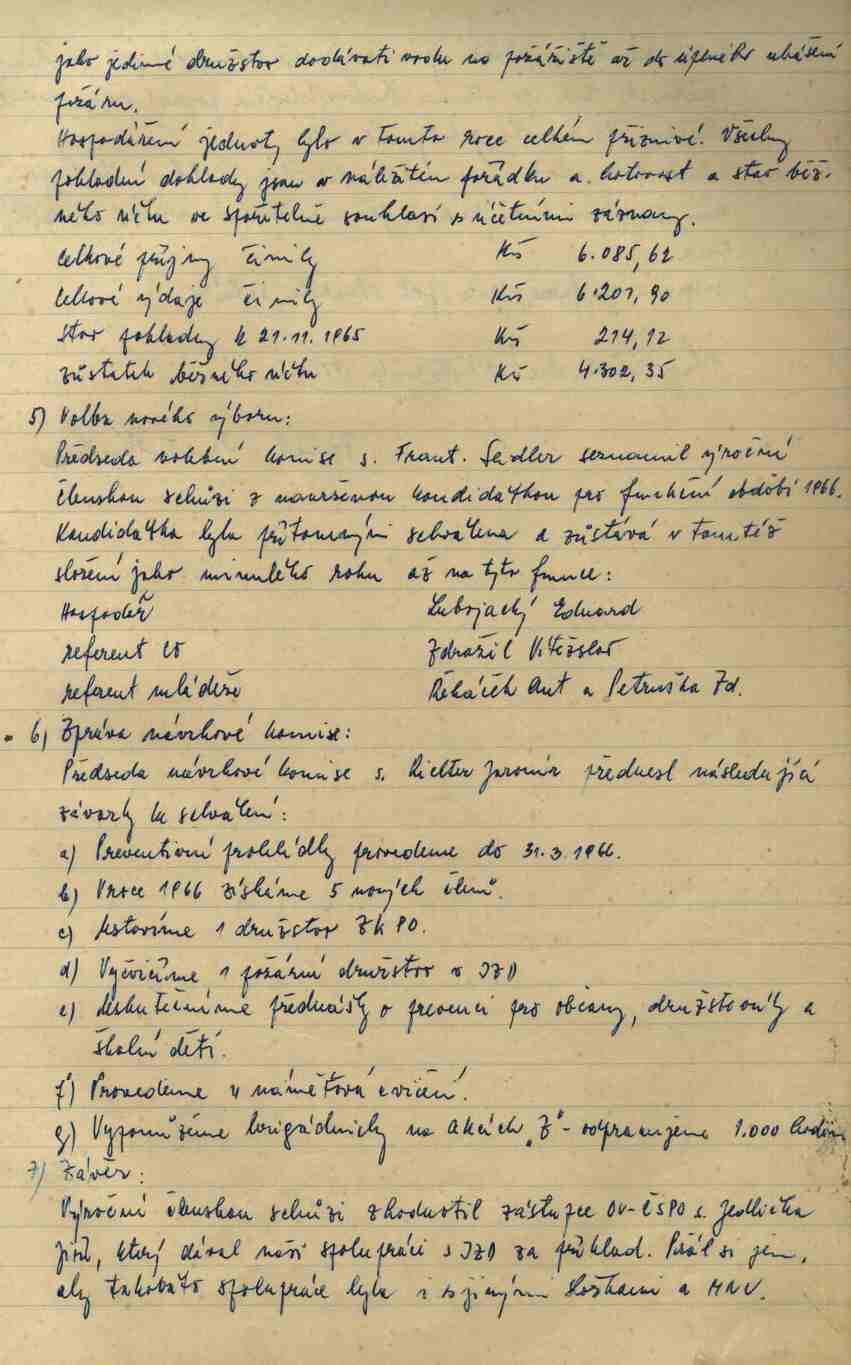 jako jediné družstvo dodávati vodu na požářiště až do úplného uhášení
požáru.
Hospodaření jednoty bylo v tomto roce celkem příznivé. Všechny
pokladní doklady jsou v náležitém pořádku a hotovost a stav běž-
ného účtu ve spořitelně souhlasí s účetními záznamy.
Celkové příjmy činily Kčs 6.085,62
Celkové výdaje činily Kčs 6.201,90
Stav pokladny k 21.11.1965 Kčs 214,12
zůstatek běžného účtu Kčs 4.302,35
5) Volba nového výboru:
Předseda volební komise s. Frant. Sadler seznamil výroční
členskou schůzi z navrženou kandidátkou pro funkční období 1966.
Kandidátka byla přítomnými schválena a zůstává v tomtéž
složení jako minulého roku až na tyto funce:
Hospodář Lubojacký Eduard
referent CO Zdražil Vítězslav
referent mládeže Řeháček Ant a Petruška Zd.
6) Zpráva návrhové komise:
Předseda návrhové komise s. Richter Jaromír přednesl následující
závazky ke schválení:
a) Preventivní prohlídky provedeme do 31.3.1966.
b) V roce 1966 získáme 5 nových členů.
c) Ustavíme 1 družstvo ZK PO.
d) Vycvičíme 1 požární družstvo v JZD
e) Uskutečníme přednášky o prevenci pro občany, družstevníky a
školní dětí.
f) Provedeme 4 námětová cvičení.
g) Vypomůžeme brigádnicky na akcích „Z" - odpracujeme 1.000 hodin
7) Závěr:
Výroční členskou schůzi zhodnotil zástupce OV-ČSPO s. Jedlička
Jiří, který dával naši spolupráci s JZD za příklad. Přál si jen,
aby takováto spolupráce byla i s jinými složkami a MNV.